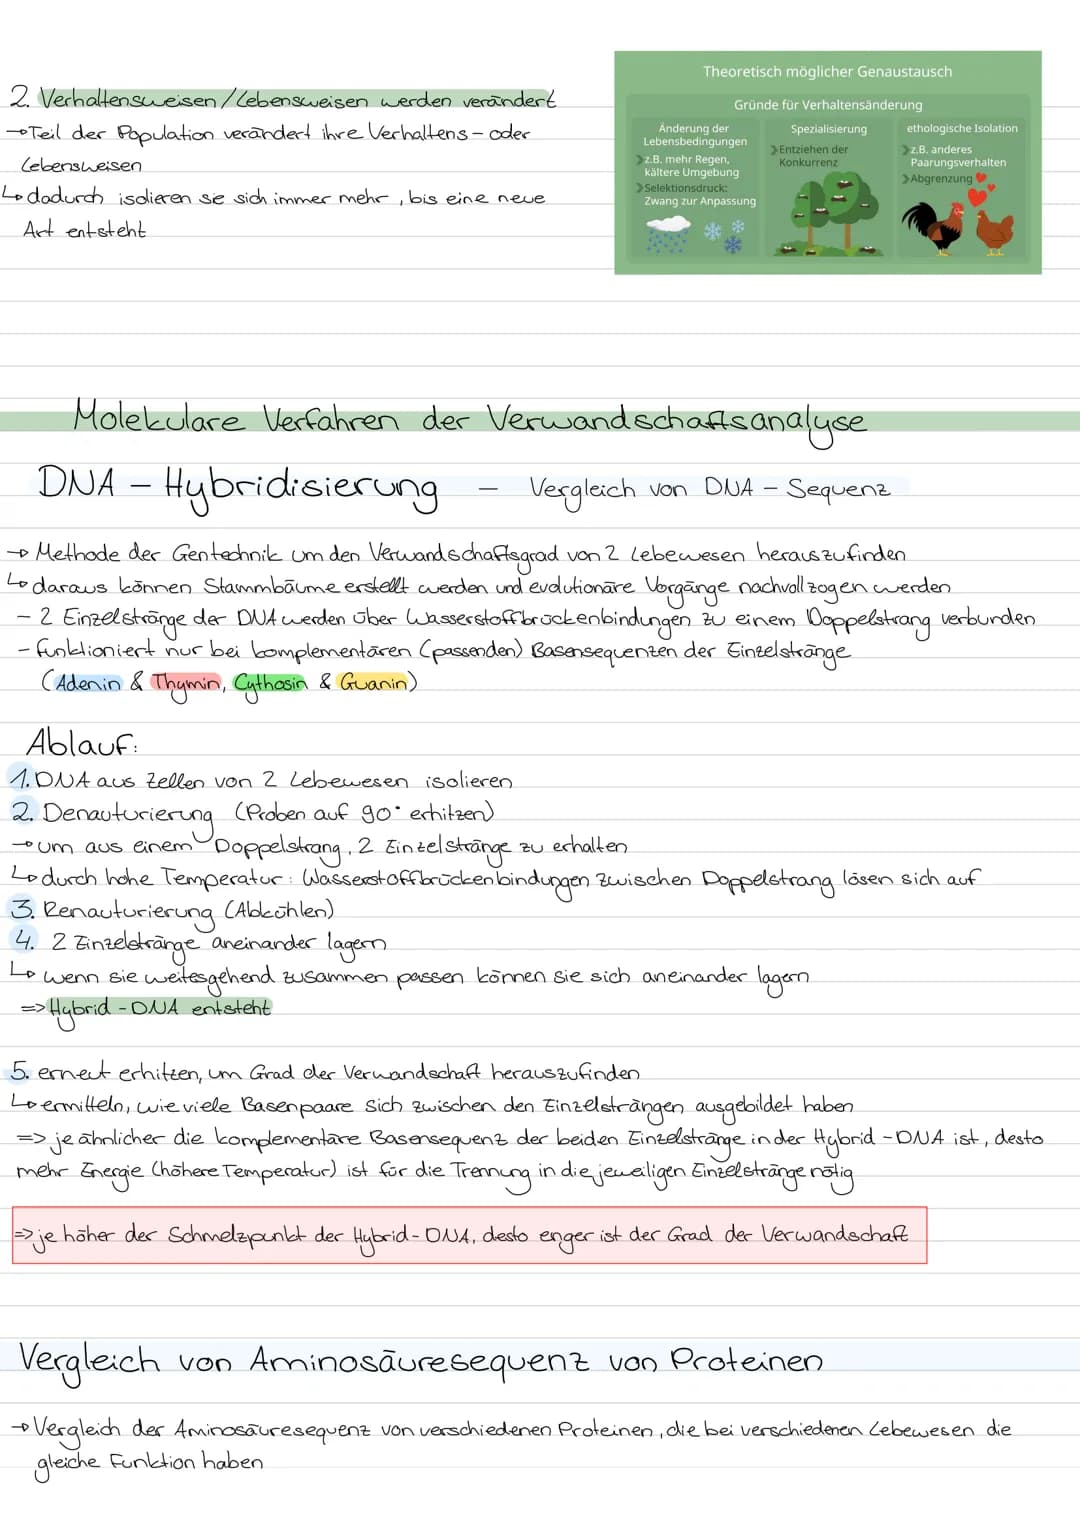 2. Verhaltensweisen/Lebensweisen werden verändert
→Teil der Population verändert ihre Verhaltens- oder
Lebensweisen
↳dadurch isolieren sie sich immer mehr, bis eine neue
Art entsteht
Theoretisch möglicher Genaustausch
Gründe für Verhaltensänderung
Änderung der
Lebensbedingungen
z.B. mehr Regen,
kältere Umgebung
Selektionsdruck:
Zwang zur Anpassung
Spezialisierung
Entziehen der
Konkurrenz
ethologische Isolation
z.B. anderes
Paarungsverhalten
Abgrenzung
Molekulare Verfahren der Verwandschaftsanalyse
DNA - Hybridisierung - Vergleich von DNA - Sequenz
→ Methode der Gentechnik um den Verwandschaftsgrad von 2 Lebewesen herauszufinden
↳ daraus können Stammbäume erstellt werden und evolutionäre Vorgänge nachvollzogen werden
- 2 Einzelstränge der DNA werden über Wasserstoffbrückenbindungen zu einem Doppelstrang verbunden
- funktioniert nur bei komplementären (passenden) Basensequenzen der Einzelstränge
(Adenin & Thymin, Cythosin & Guanin)
Ablauf:
1. DNA aus Zellen von 2 Lebewesen isolieren
2. Denauturierung (Proben auf 90° erhitzen)
→um aus einem Doppelstrang, 2 Einzelstränge zu erhalten
↳ durch hohe Temperatur: Wasserstoffbrückenbindungen zwischen Doppelstrang lösen sich auf
3. Renauturierung (Abkühlen)
4. 2 Einzelstränge aneinander lagern
↳ wenn sie weitesgehend zusammen passen können sie sich aneinander lagern
=> Hybrid - DNA entsteht
5. erneut erhitzen, um Grad der Verwandschaft herauszufinden
↳ ermitteln, wie viele Basenpaare sich zwischen den Einzelsträngen ausgebildet haben
=> je ähnlicher die komplementäre Basensequenz der beiden Einzelstränge in der Hybrid - DNA ist, desto
mehr Energie (höhere Temperatur) ist für die Trennung in die jeweiligen Einzelstränge nötig
=> je höher der Schmelzpunkt der Hybrid - DNA, desto enger ist der Grad der Verwandschaft
Vergleich von Aminosäuresequenz von Proteinen
→ Vergleich der Aminosäuresequenz von verschiedenen Proteinen, die bei verschiedenen Lebewesen die
gleiche Funktion haben